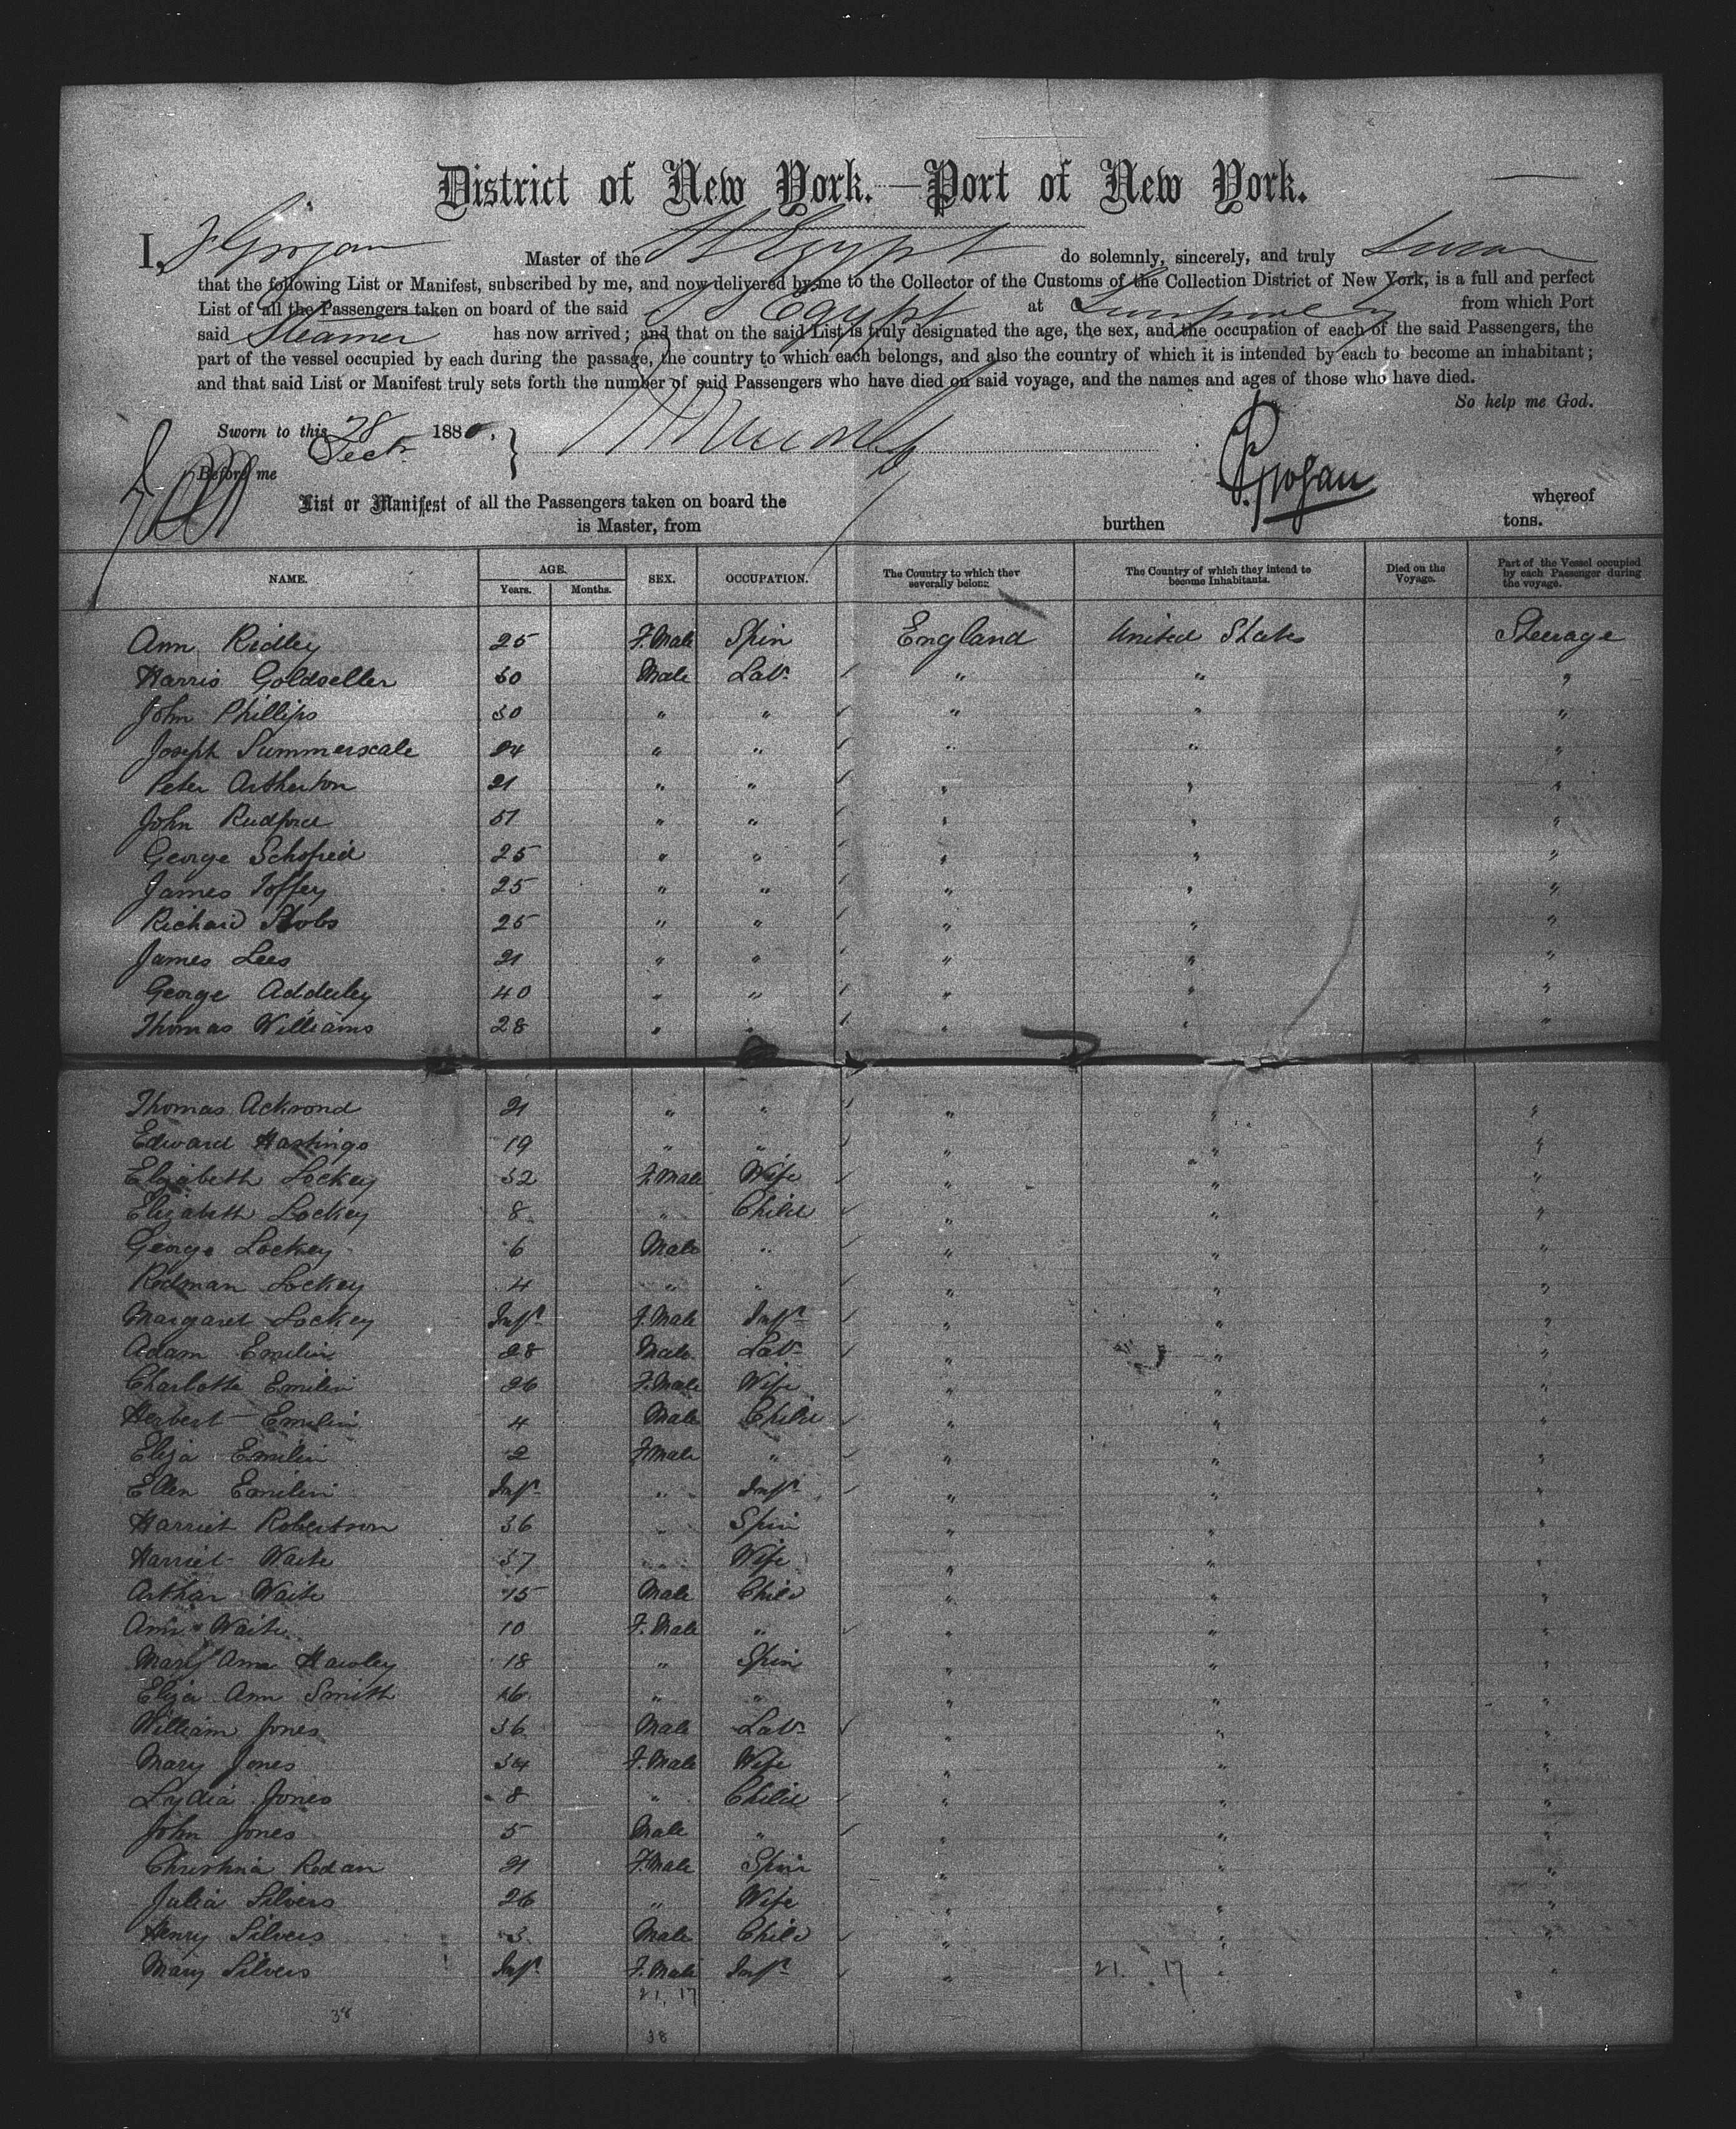 District of New York.—Port of New York.
I, J Grogan Master of the SS Egypt do solemnly, sincerely, and truly Swear
that the following List or Manifest, subscribed by me, and now delivered by me to the Collector of the Customs of the Collection District of New York, is a full and perfect
List of all the Passengers taken on board of the said SS Egypt at Liverpool from which Port
said Steamer has now arrived; and that on the said List is truly designated the age, the sex, and the occupation of each of the said Passengers, the
part of the vessel occupied by each during the passage, the country to which each belongs, and also the country of which it is intended by each to become an inhabitant;
and that said List or Manifest truly sets forth the number of said Passengers who have died on said voyage, and the names and ages of those who have died.
So help me God.
Sworn to this 28 188
Before me
Grogan
List or Manifest of all the Passengers taken on board the whereof
is Master, from burthen tons.
NAME. AGE. Years. Months. SEX. OCCUPATION. The Country to which they severally belong. The Country of which they intend to become Inhabitants. Died on the Voyage. Part of the Vessel occupied by each Passenger during the voyage.
Ann Ridley 25 F.Male Spin England United States Steerage
Harris Goldseller 50 Male Labr " " "
John Phillips 30 " " " " "
Joseph Summerscale 24 " " " " "
Peter Artherton 21 " " " " "
John 51 " " " " "
George Schofield 25 " " " " "
James Toffey 25 " " " " "
Richard Stobs 25 " " " " "
James Lees 21 " " " " "
George Adderley 40 " " " " "
Thomas Williams 28 " " " " "
Thomas Ackrond 21 " " " " "
Edward Hastings 19 " " " " "
Elizabeth Lockey 32 F.Male Wife " " "
Elizabeth Lockey 8 " Child " " "
George Lockey 6 Male " " " "
Redman Lockey 4 " " " " "
Margaret Lockey Inft F.Male Inft " " "
Adam Emilin 28 Male Labr " " "
Charlotte Emilin 26 F.Male Wife " " "
Herbert Emilin 4 Male Child " " "
Eliza Emilin 2 F.Male " " " "
Ellen Emilin Inft " Inft " " "
Harriet Robertson 36 " Spin " " "
Harriet Waite 37 " Wife " " "
Arthur Waite 15 Male Child " " "
Ann Waite 10 F.Male " " " "
Mary Ann Hawley 18 " Spin " " "
Eliza Ann Smith 16 " " " " "
William Jones 36 Male Labr " " "
Mary Jones 34 F.Male Wife " " "
Lydia Jones 8 " Child " " "
John Jones 5 Male " " " "
Christina Redan 21 F.Male Spin " " "
Julia Silvers 26 " Wife " " "
Henry Silvers 3 Male Child " " "
Mary Silvers Inft F.Male Inft " 21. 17 " "
21. 17
38
38